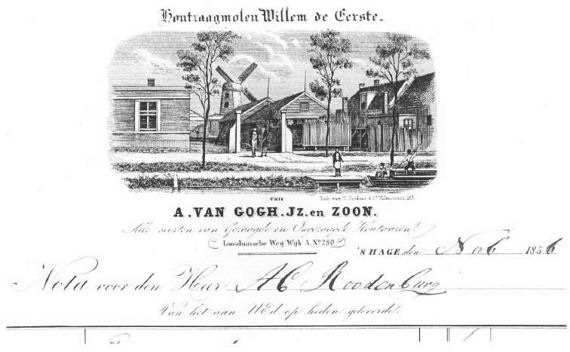 Houtzaagmolen Willem de Eerste.
VAN
A. VAN GOGH. Jz. en ZOON.
Alle soorten van Gezaagde en Ongezaagde Houtwaren.
Loosduinsche Weg Wijk A. No 280
'S HAGE den Nov 1856
Nota voor den Heer AC Roodenburg
Van het aan UEd. op heden geleverde.